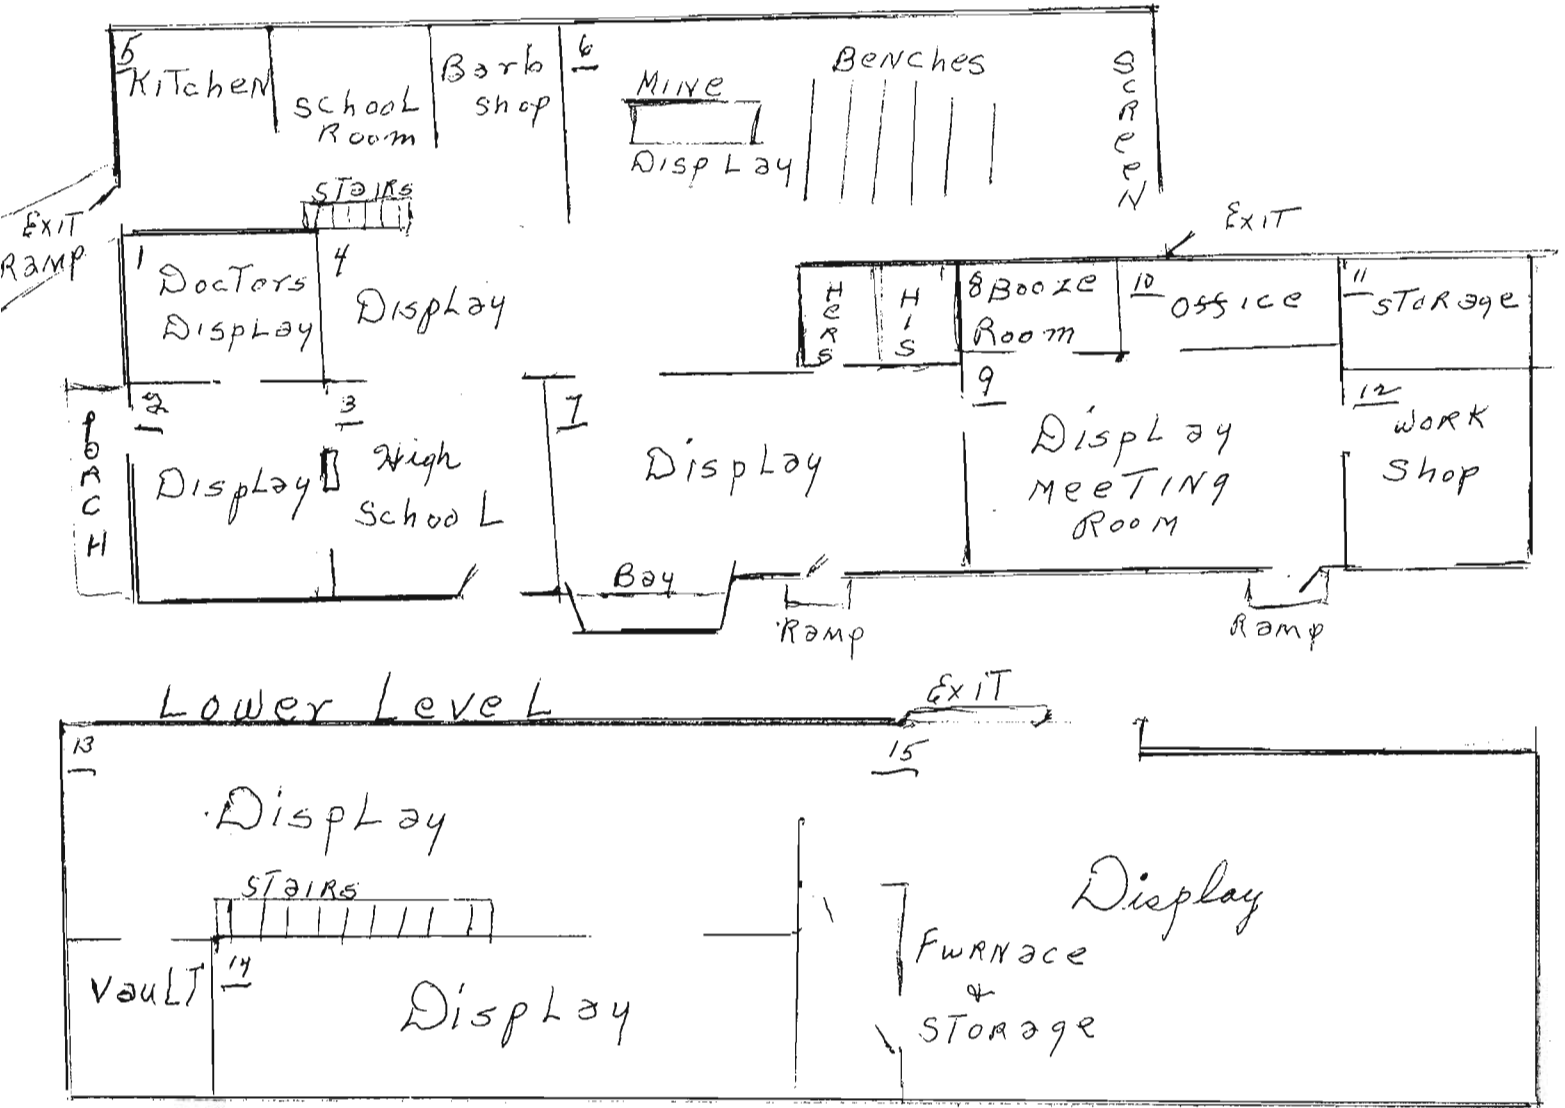 5
KiTcheN
School
Room
Barb
Shop
6
Mine
Display
Benches
Screen
Stairs
Exit
Ramp
1
Doctors
Display
4
Display
Exit
Hers
His
8 Booze
Room
10
Office
11
Storage
Porch
2
Display
3
High
School
7
Display
9
Display
Meeting
Room
12
Work
Shop
Bay
Ramp
Ramp
Lower Level
Exit
13
Display
15
Stairs
Display
Vault
14
Display
Fwrnace
&
Storage